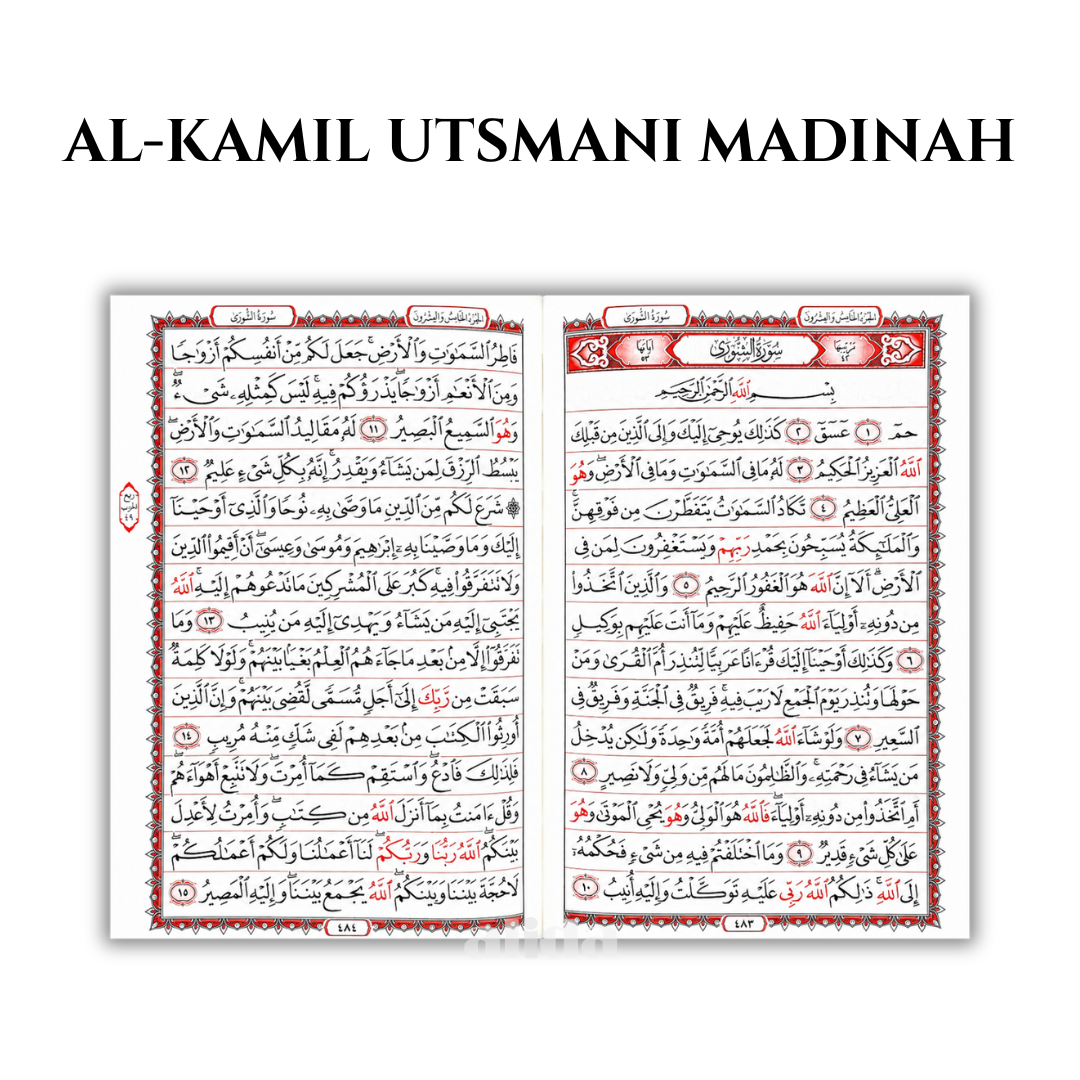 AL-KAMIL UTSMANI MADINAH
الجزء الخامس والعشرون
سورة الشورى
ترتيبها ٤٢
سورة الشورى
آياتها ٥٣
بِسْمِ ٱللَّهِ ٱلرَّحْمَٰنِ ٱلرَّحِيمِ
حمٓ ١ عٓسٓقٓ ٢ كَذَٰلِكَ يُوحِىٓ إِلَيْكَ وَإِلَى ٱلَّذِينَ مِن قَبْلِكَ
ٱللَّهُ ٱلْعَزِيزُ ٱلْحَكِيمُ ٣ لَهُۥ مَا فِى ٱلسَّمَٰوَٰتِ وَمَا فِى ٱلْأَرْضِ ۖ وَهُوَ
ٱلْعَلِىُّ ٱلْعَظِيمُ ٤ تَكَادُ ٱلسَّمَٰوَٰتُ يَتَفَطَّرْنَ مِن فَوْقِهِنَّ ۚ
وَٱلْمَلَٰٓئِكَةُ يُسَبِّحُونَ بِحَمْدِ رَبِّهِمْ وَيَسْتَغْفِرُونَ لِمَن فِى
ٱلْأَرْضِ ۗ أَلَآ إِنَّ ٱللَّهَ هُوَ ٱلْغَفُورُ ٱلرَّحِيمُ ٥ وَٱلَّذِينَ ٱتَّخَذُوا۟
مِن دُونِهِۦٓ أَوْلِيَآءَ ٱللَّهُ حَفِيظٌ عَلَيْهِمْ وَمَآ أَنتَ عَلَيْهِم بِوَكِيلٍ
٦ وَكَذَٰلِكَ أَوْحَيْنَآ إِلَيْكَ قُرْءَانًا عَرَبِيًّا لِّتُنذِرَ أُمَّ ٱلْقُرَىٰ وَمَنْ
حَوْلَهَا وَتُنذِرَ يَوْمَ ٱلْجَمْعِ لَا رَيْبَ فِيهِ ۚ فَرِيقٌ فِى ٱلْجَنَّةِ وَفَرِيقٌ فِى
ٱلسَّعِيرِ ٧ وَلَوْ شَآءَ ٱللَّهُ لَجَعَلَهُمْ أُمَّةً وَٰحِدَةً وَلَٰكِن يُدْخِلُ
مَن يَشَآءُ فِى رَحْمَتِهِۦ ۚ وَٱلظَّٰلِمُونَ مَا لَهُم مِّن وَلِىٍّ وَلَا نَصِيرٍ ٨
أَمِ ٱتَّخَذُوا۟ مِن دُونِهِۦٓ أَوْلِيَآءَ ۖ فَٱللَّهُ هُوَ ٱلْوَلِىُّ وَهُوَ يُحْىِ ٱلْمَوْتَىٰ وَهُوَ
عَلَىٰ كُلِّ شَىْءٍ قَدِيرٌ ٩ وَمَا ٱخْتَلَفْتُمْ فِيهِ مِن شَىْءٍ فَحُكْمُهُۥٓ
إِلَى ٱللَّهِ ۚ ذَٰلِكُمُ ٱللَّهُ رَبِّى عَلَيْهِ تَوَكَّلْتُ وَإِلَيْهِ أُنِيبُ ١٠
٤٨٣
الجزء الخامس والعشرون
سورة الشورى
فَاطِرُ ٱلسَّمَٰوَٰتِ وَٱلْأَرْضِ ۚ جَعَلَ لَكُم مِّنْ أَنفُسِكُمْ أَزْوَٰجًا
وَمِنَ ٱلْأَنْعَٰمِ أَزْوَٰجًا ۖ يَذْرَؤُكُمْ فِيهِ ۚ لَيْسَ كَمِثْلِهِۦ شَىْءٌ ۖ
وَهُوَ ٱلسَّمِيعُ ٱلْبَصِيرُ ١١ لَهُۥ مَقَالِيدُ ٱلسَّمَٰوَٰتِ وَٱلْأَرْضِ ۖ
يَبْسُطُ ٱلرِّزْقَ لِمَن يَشَآءُ وَيَقْدِرُ ۚ إِنَّهُۥ بِكُلِّ شَىْءٍ عَلِيمٌ ١٢
ربع الحزب ٤٩
۞ شَرَعَ لَكُم مِّنَ ٱلدِّينِ مَا وَصَّىٰ بِهِۦ نُوحًا وَٱلَّذِىٓ أَوْحَيْنَآ
إِلَيْكَ وَمَا وَصَّيْنَا بِهِۦٓ إِبْرَٰهِيمَ وَمُوسَىٰ وَعِيسَىٰٓ ۖ أَنْ أَقِيمُوا۟ ٱلدِّينَ
وَلَا تَتَفَرَّقُوا۟ فِيهِ ۚ كَبُرَ عَلَى ٱلْمُشْرِكِينَ مَا تَدْعُوهُمْ إِلَيْهِ ۚ ٱللَّهُ
يَجْتَبِىٓ إِلَيْهِ مَن يَشَآءُ وَيَهْدِىٓ إِلَيْهِ مَن يُنِيبُ ١٣ وَمَا
تَفَرَّقُوٓا۟ إِلَّا مِنۢ بَعْدِ مَا جَآءَهُمُ ٱلْعِلْمُ بَغْيًۢا بَيْنَهُمْ ۚ وَلَوْلَا كَلِمَةٌ
سَبَقَتْ مِن رَّبِّكَ إِلَىٰٓ أَجَلٍ مُّسَمًّى لَّقُضِىَ بَيْنَهُمْ ۚ وَإِنَّ ٱلَّذِينَ
أُورِثُوا۟ ٱلْكِتَٰبَ مِنۢ بَعْدِهِمْ لَفِى شَكٍّ مِّنْهُ مُرِيبٍ ١٤
فَلِذَٰلِكَ فَٱدْعُ ۖ وَٱسْتَقِمْ كَمَآ أُمِرْتَ ۖ وَلَا تَتَّبِعْ أَهْوَآءَهُمْ ۖ
وَقُلْ ءَامَنتُ بِمَآ أَنزَلَ ٱللَّهُ مِن كِتَٰبٍ ۖ وَأُمِرْتُ لِأَعْدِلَ
بَيْنَكُمُ ۖ ٱللَّهُ رَبُّنَا وَرَبُّكُمْ ۖ لَنَآ أَعْمَٰلُنَا وَلَكُمْ أَعْمَٰلُكُمْ ۖ
لَا حُجَّةَ بَيْنَنَا وَبَيْنَكُمُ ۖ ٱللَّهُ يَجْمَعُ بَيْنَنَا ۖ وَإِلَيْهِ ٱلْمَصِيرُ ١٥
٤٨٤